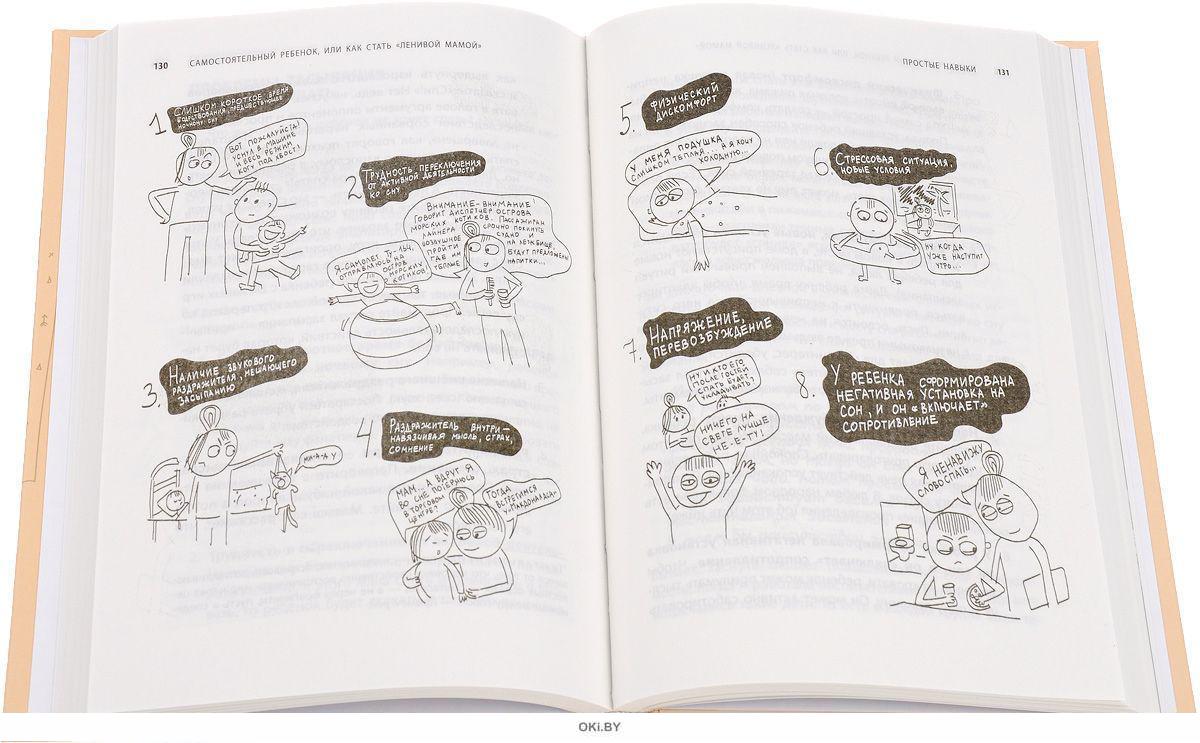 130 САМОСТОЯТЕЛЬНЫЙ РЕБЕНОК, ИЛИ КАК СТАТЬ «ЛЕНИВОЙ МАМОЙ»
1 СЛИШКОМ КОРОТКОЕ ВРЕМЯ
БОДРСТВОВАНИЯ, ПРЕДШЕСТВУЮЩЕЕ
НОЧНОМУ СНУ
ВОТ ПОЖАЛУЙСТА!
УСНУЛ В МАШИНЕ
И ВЕСЬ РЕЖИМ
КОТУ ПОД ХВОСТ!
2. ТРУДНОСТЬ ПЕРЕКЛЮЧЕНИЯ
ОТ АКТИВНОЙ ДЕЯТЕЛЬНОСТИ
КО СНУ
Я-САМОЛЕТ ТУ-154,
ОТПРАВЛЯЮСЬ НА
ОСТРОВ
МОРСКИХ
КОТИКОВ!
ВНИМАНИЕ-ВНИМАНИЕ!
ГОВОРИТ ДИСПЕТЧЕР ОСТРОВА
МОРСКИХ КОТИКОВ. ПАССАЖИРАМ
ЛАЙНЕРА СРОЧНО ПОКИНУТЬ
ВОЗДУШНОЕ СУДНО И
ПРОЙТИ НА ЛЕЖБИЩЕ,
ГДЕ ИМ БУДУТ ПРЕДЛОЖЕНЫ
ТЕПЛЫЕ НАПИТКИ...
3. НАЛИЧИЕ ЗВУКОВОГО
РАЗДРАЖИТЕЛЯ, МЕШАЮЩЕГО
ЗАСЫПАНИЮ
МИ-А-А-У
4. РАЗДРАЖИТЕЛЬ ВНУТРИ-
НАВЯЗЧИВАЯ МЫСЛЬ, СТРАХ,
СОМНЕНИЕ
МАМ... А ВДРУГ Я
ВО СНЕ ПОТЕРЯЮСЬ
В ТОРГОВОМ
ЦЕНТРЕ?
ТОГДА
ВСТРЕТИМСЯ
У «МАКДОНАЛДСА»
ПРОСТЫЕ НАВЫКИ 131
5. ФИЗИЧЕСКИЙ
ДИСКОМФОРТ
У МЕНЯ ПОДУШКА
СЛИШКОМ ТЕПЛАЯ... А Я ХОЧУ
ХОЛОДНУЮ...
6. СТРЕССОВАЯ СИТУАЦИЯ,
НОВЫЕ УСЛОВИЯ
НУ КОГДА
УЖЕ НАСТУПИТ
УТРО...
7. НАПРЯЖЕНИЕ,
ПЕРЕВОЗБУЖДЕНИЕ
НУ И КТО ЕГО
ПОСЛЕ ГОСТЕЙ
СПАТЬ БУДЕТ
УКЛАДЫВАТЬ?
НИЧЕГО НА
СВЕТЕ ЛУЧШЕ
НЕ-Е-ТУ!
8. У РЕБЕНКА СФОРМИРОВАНА
НЕГАТИВНАЯ УСТАНОВКА НА
СОН, И ОН «ВКЛЮЧАЕТ»
СОПРОТИВЛЕНИЕ
Я НЕНАВИЖУ
СЛОВО СПАТЬ...
OKi.BY